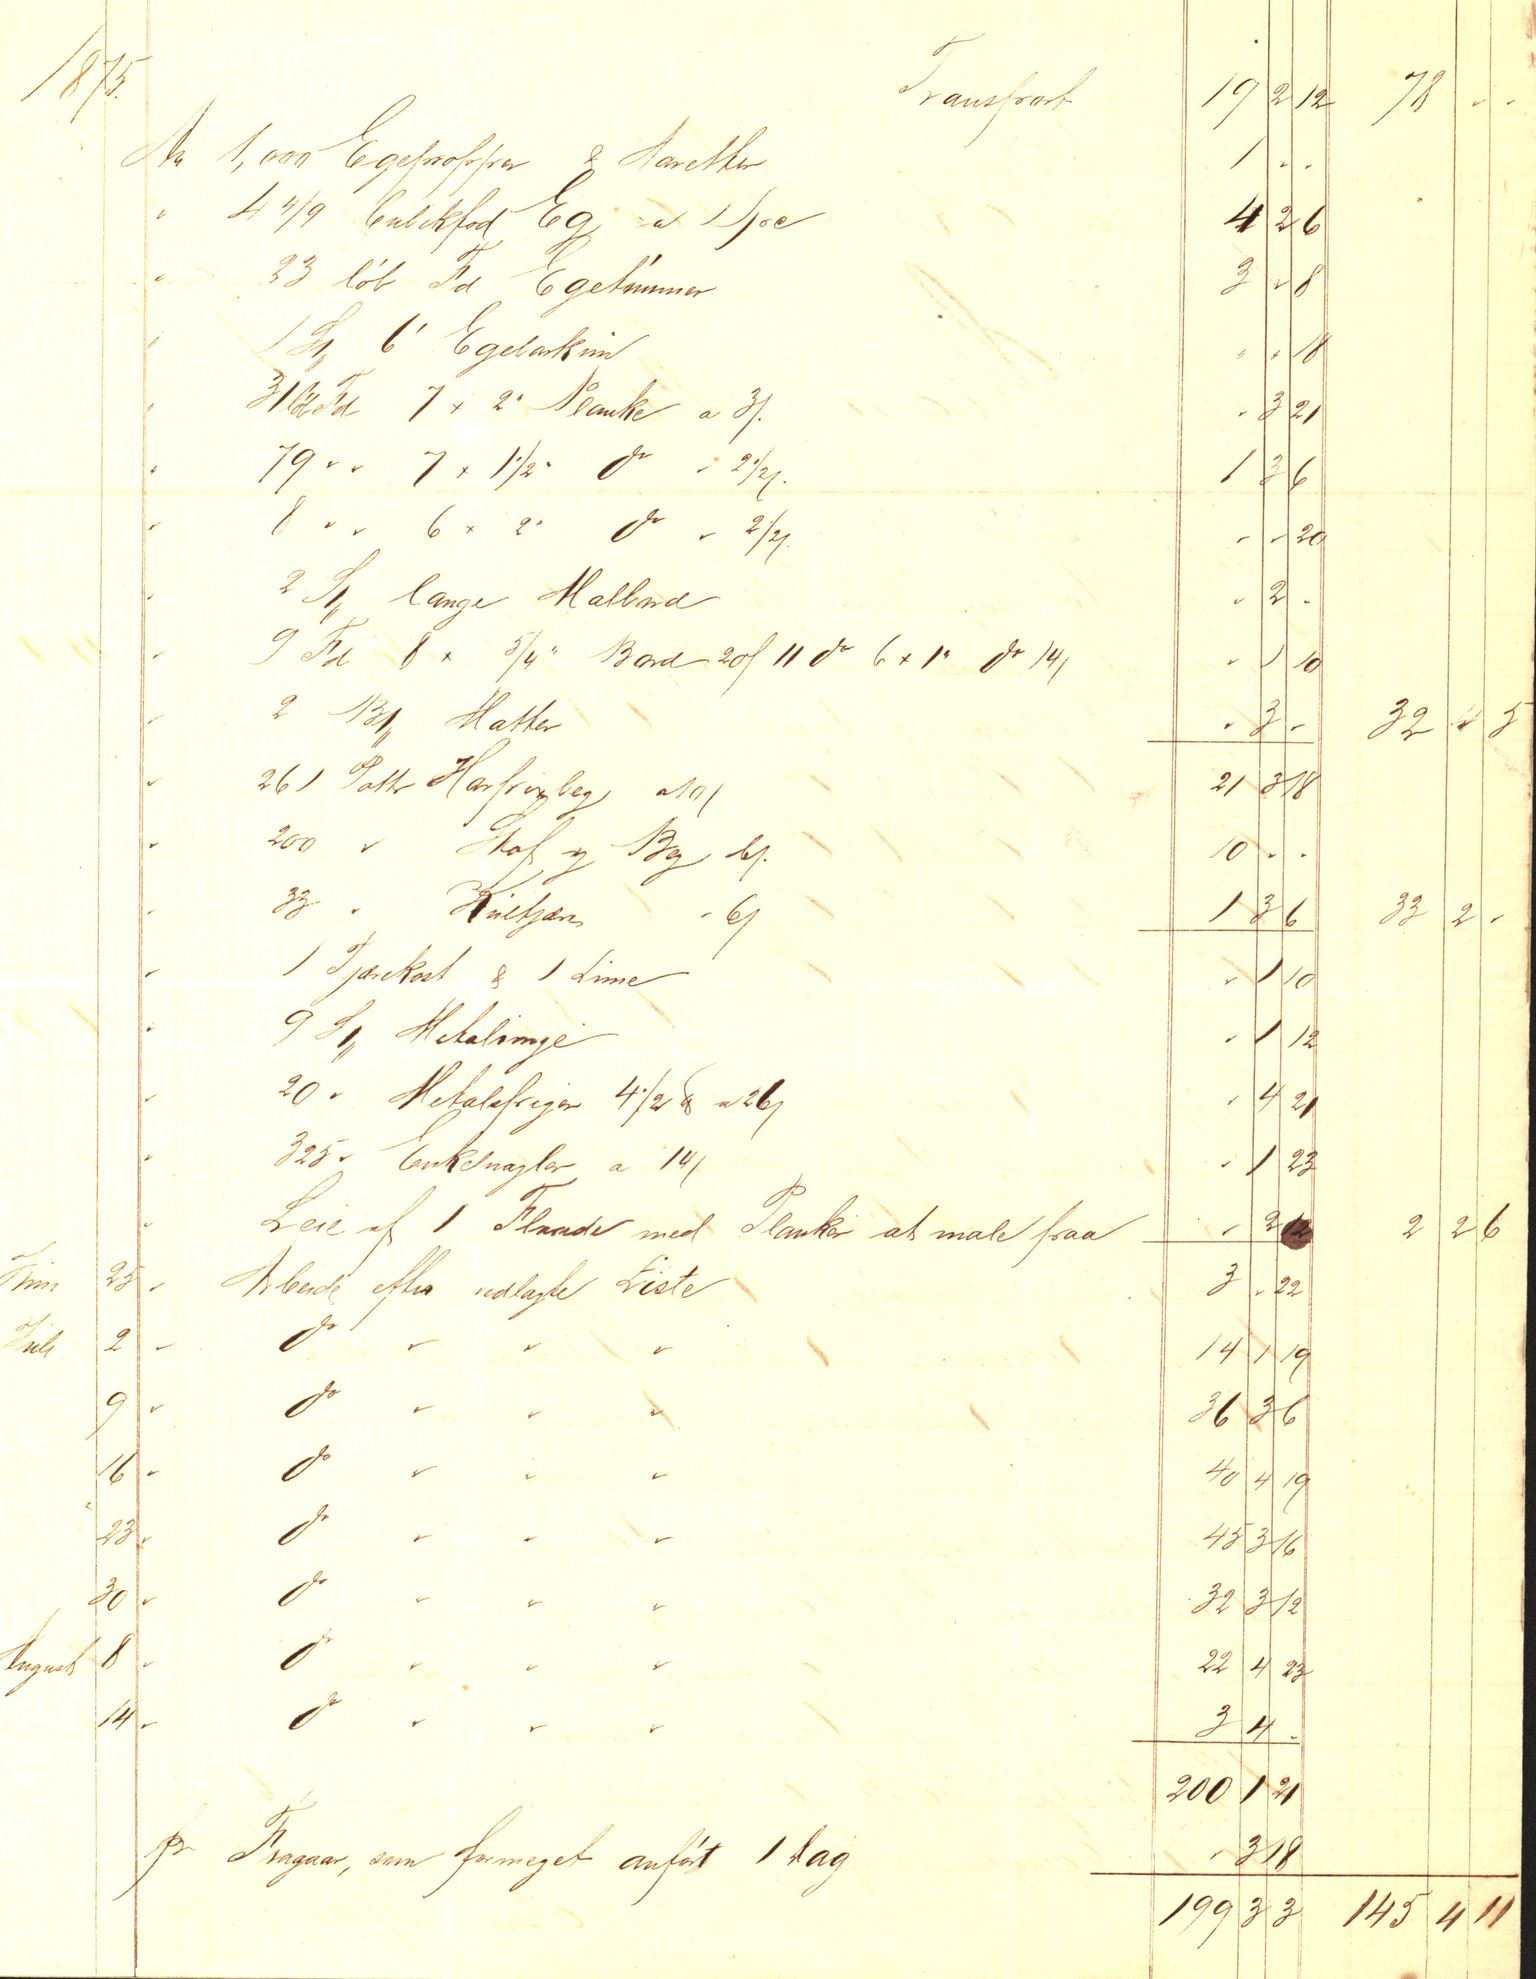 1875. Transport 19 2 12 78 " "
An 1,000 Egepropper & Navetter 1 " "
" 4 4/9 Cubikfod Eg a 1 Spe 4 2 6
" 23 löb Fd Egetömmer 3 " 8
" 1 St, 6' Egebarkun " " 18
" 31 löb Fd 7 x 2" Planke a 3/. " 3 21
" 79 " " 7 x 1 1/2" do " 2 1/2/. 1 3 6
" 8 " " 6 x 2" do " 2 1/2/. " " 20
" 2 St, lange Malbord " 2 "
" 9 Fd 8 x 5/4" Bord 20/ 11 do 6 x 1" do 14/ " 1 10
" 2 Bt, Matter " 3 " 32 " 5
" 261 Potter Harpixbeg a 10/ 21 3 18
" 200 " Stof og Beg 6/. 10 " "
" 33 " Kultjære " 6/ 1 3 6 33 2 "
" 1 Tjærekost & 1 Lime " 1 10
" 9 St, " 1 12
" 20 " 4 1/2 a 26/ " 4 21
" 325 " Enkelnagler a 14/ " 1 23
" Leie af 1 Flaade med Planker at male fraa " 2 12 2 2 6
Juni 25 " Arbeide efter udlagte Liste 3 " 22
Juli 2 " do " " " 14 1 19
9 " do " " " 36 3 6
16 " do " " " 40 4 19
23 " do " " " 45 3 16
30 " do " " " 32 3 12
August 8 " do " " " 22 4 23
14 " do " " " 3 4 "
200 1 21
som formeget anfört 1 dag " 3 18
199 3 3 145 4 11